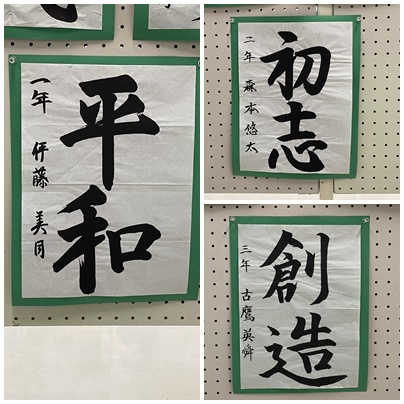 平和
一年 伊藤 美月
初志
二年 森本悠大
創造
三年 古鷹英舜